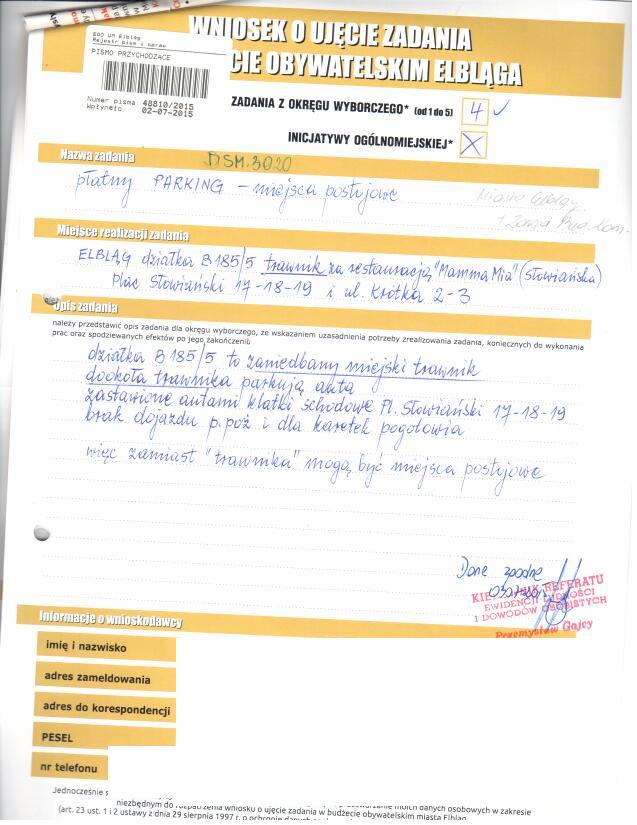 WNIOSEK O UJĘCIE ZADANIA
CIE OBYWATELSKIM ELBLĄGA
EOD UM Elbląg
Rejestr pism i spraw
PISMO PRZYCHODZĄCE
Numer pisma: 48810/2015
Wpłynęło: 02-07-2015
ZADANIA Z OKRĘGU WYBORCZEGO* (od 1 do 5) 4 ✓
INICJATYWY OGÓLNOMIEJSKIEJ* X
Nazwa zadania
DSM.3020
płatny PARKING – miejsca postojowe
Miasto Elbląg
+ Zarząd Bud. Kom-
Miejsce realizacji zadania
ELBLĄG działka B 185/5 trawnik za restauracją "Mamma Mia" (Słowiańska)
Plac Słowiański 17-18-19 i ul. Krótka 2-3
Opis zadania
należy przedstawić opis zadania dla okręgu wyborczego, ze wskazaniem uzasadnienia potrzeby zrealizowania zadania, koniecznych do wykonania
prac oraz spodziewanych efektów po jego zakończeniu
działka B 185/5 to zaniedbany miejski trawnik
dookoła trawnika parkują auta
zastawione autami klatki schodowe Pl. Słowiański 17-18-19
brak dojazdu p.poż i dla karetek pogotowia
więc zamiast "trawnika" mogą być miejsca postojowe
Dane zgodne
KIEROWNIK REFERATU
EWIDENCJI LUDNOŚCI
I DOWODÓW OSOBISTYCH
Przemysław Gajcy
Informacje o wnioskodawcy
imię i nazwisko
adres zameldowania
adres do korespondencji
PESEL
nr telefonu
Jednocześnie
niezbędnym do rozpatrzenia wniosku o ujęcie zadania w budżecie obywatelskim miasta Elbląg
(art. 23 ust. 1 i 2 ustawy z dnia 29 sierpnia 1997 r. o ochronie